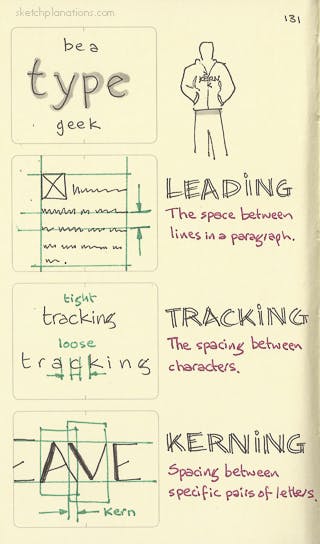 sketchplanations.com
131
be a
type
geek
LEADING
The space between
lines in a paragraph.
tight
tracking
loose
tracking
TRACKING
The spacing between
characters.
EAVE
kern
KERNING
Spacing between
specific pairs of letters.